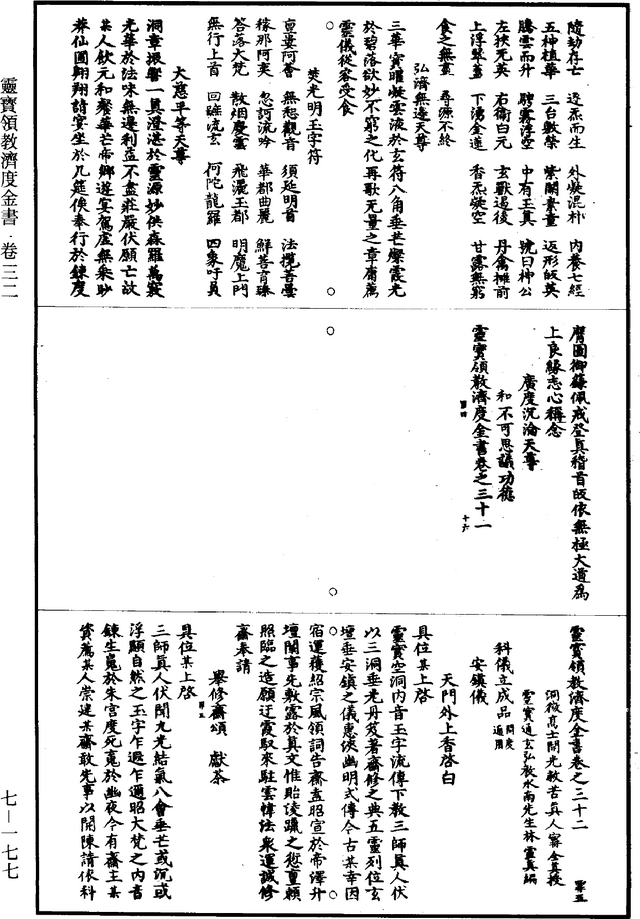 隨劫存亡　逐炁而生　外凝混朴　內養七經
五種植華　三台敷榮　紫闕素童　返形皈英
騰雲而升　騁霧浮空　中有玉真　號曰神公
左挾元英　右衛白元　玄獸遏後　丹禽攤前
上浮翠蓋　下湧金蓮　香炁凝空　甘露無窮
食之無量　尋源不終
弘濟無邊天尊
三華寶曜凝雲液於玄符八角垂芒燦震光
於碧落欲妙不窮之化再歌无量之章庸薦
靈儀從容受食
焚光明玉字符
亶婁阿薈　無惒觀音　須延明首　法攬菩曇
稼那阿奕　忽訶流吟　華都曲麗　鮮菩育臻
答落大梵　散烟慶雲　飛灑玉都　明魔上門
無行上首　回蹠流玄　何陀龍羅　四象吁員
大慈平等天尊
洞章振響一真澄湛於靈源妙供森羅萬竅
光華於法味無邊利益不盡莊嚴伏願亡故
某人飲元和粲華芒帝鄉遊宴駕虛無乘眇
莽仙圃翔翔請安坐於几筵俟奉行於鍊度
膺圖御籙佩戒登真稽首皈依無極大道為
上良緣志心稱念
廣度沉淪天尊
和不可思議功德
靈寶領教濟度金書卷之三十一
罪四
十六
靈寶領教濟度金書卷之三十二
罪五
洞微高士開光救苦真人甯全真授
靈寶通玄弘教水南先生林靈真編
科儀立成品 開度通用
安鎮儀
天門外上香啓白
具位某上啓
靈寶空洞內音玉字流傳下教三師真人伏
以三洞垂光丹笈著齋修之典五靈列位玄
壇垂安鎮之儀惠浹幽明式傳今古某幸因
宿運獲紹宗風領詞告齋盍昭宣於帝澤升
壇關事先敷露於真文惟貽凌躐之愆亶賴
照臨之造願迂霞馭來駐雲幃法眾運誠修
齋奉請
舉修齋頌　獻茶
第五
具位某上啓
三師真人伏聞九光結氣八會垂芒或沉或
浮顯自然之玉字乍遐乍邇昭大梵之內音
鍊生䰟於朱宮度死䰟於幽夜今有齋主某
賫薦某人崇建某齋敢先事以開陳請依科
靈寶領教濟度金書・卷三二
七—一七七